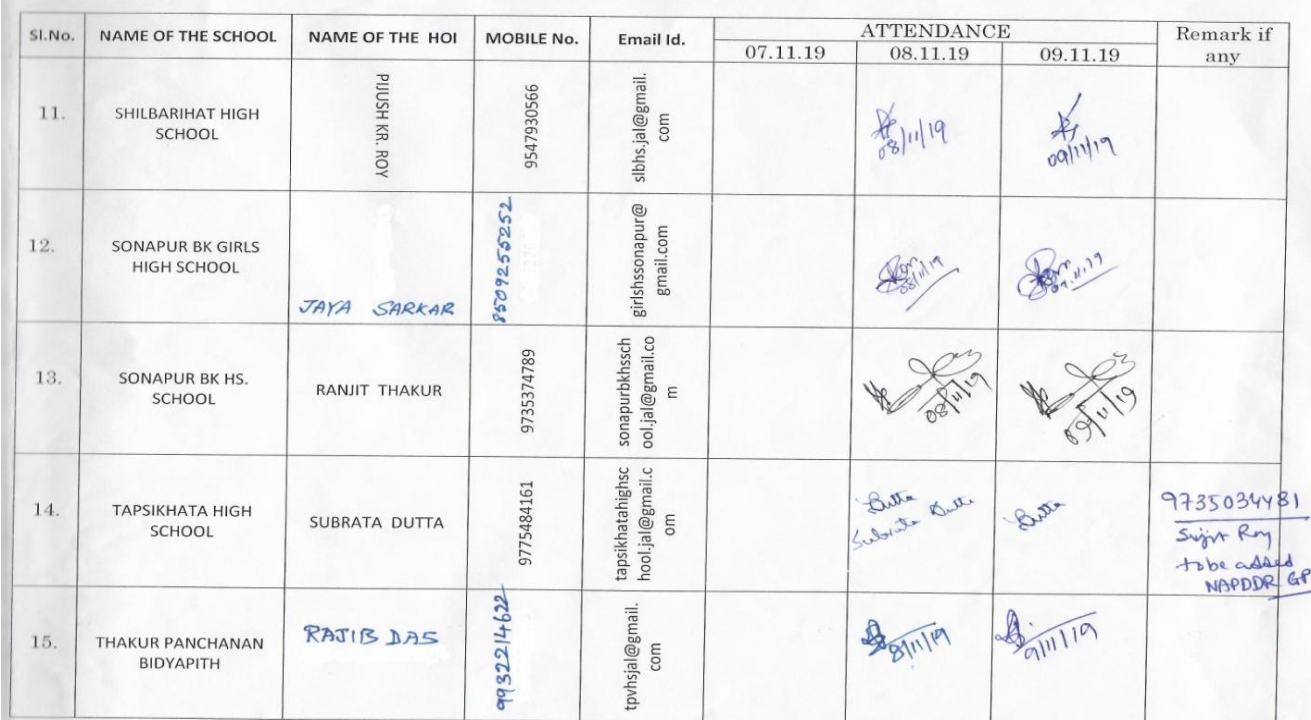 Sl.No. NAME OF THE SCHOOL NAME OF THE HOI MOBILE No. Email Id. ATTENDANCE Remark if any
07.11.19 08.11.19 09.11.19
11. SHILBARIHAT HIGH SCHOOL PIJUSH KR. ROY 9547930566 slbhs.jal@gmail.com 08/11/19 09/11/19
12. SONAPUR BK GIRLS HIGH SCHOOL JAYA SARKAR 8509255252 girlshssonapur@gmail.com 08/11/19 09.11.19
13. SONAPUR BK HS. SCHOOL RANJIT THAKUR 9735374789 sonapurbkhsschool.jal@gmail.com 08/11/19 09/11/19
14. TAPSIKHATA HIGH SCHOOL SUBRATA DUTTA 9775484161 tapsikhatahighschool.jal@gmail.com Dutta Subrata Dutta Dutta 9735034481
Sujit Roy
to be added
NAPDDR GP
15. THAKUR PANCHANAN BIDYAPITH RAJIB DAS 9932214622 tpvhsjal@gmail.com 8/11/19 9/11/19